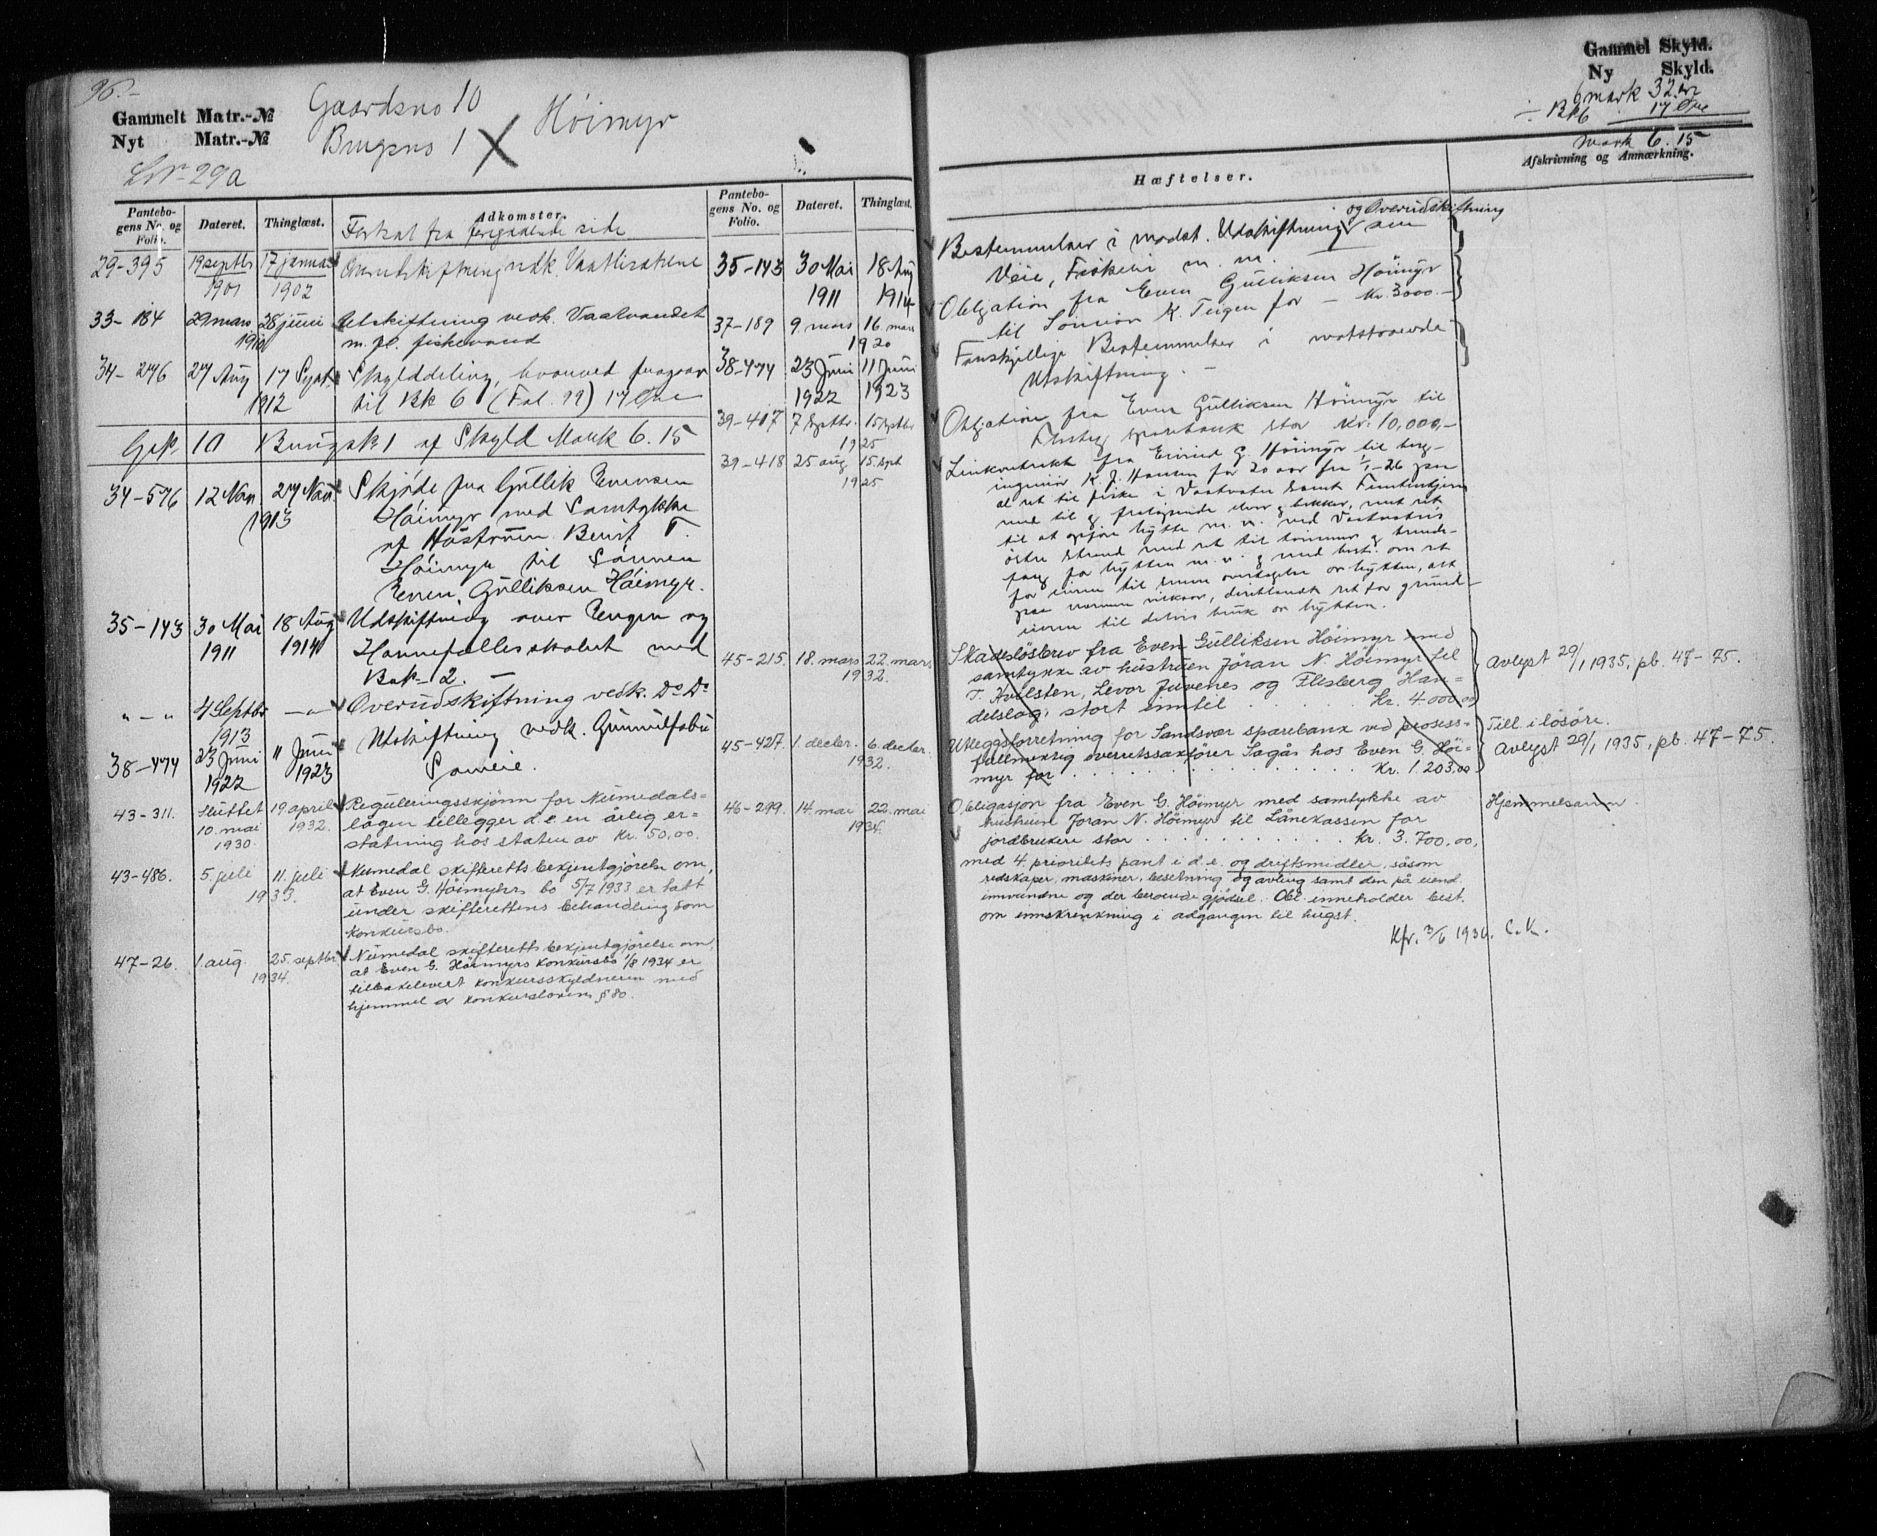 96.-
Gammelt Matr.-№ Gaardsno 10
Nyt Matr.-№ Brugsno 1 Höimyr
LNr 29a
Pantebogens No. og Folio. Dateret. Thinglæst. Adkomster.
Fortsat fra foregaaende side
29-395 19 septbr 1901 17 januar 1902 Overudskiftning vedk.
33-184 29 mars 28 juni 1910 Utskiftning vedk. Vaatvandet
m. fl. fiskevand
34-276 27 Aug 17 Sept. 1912 Skylddeling, hvorved fragaar
til Bk 6 (Fol. 99) 17 Øre
Gsk. 10 Brugsk 1 af Skyld Mark 6.15
34-576 12 Nov 27 Nov 1913 Skjöde fra Gullik Evensen
Höimyr med Samtykke
af Hustruen Berit T.
Höimyr til Sönnen
Even Gulliksen Höimyr.
35-143 30 Mai 1911 18 Aug 1914 Udskiftning over Bergen og
med
Bak- 2. -
" - " 4 Septbr 1913 - " - Overudskiftning vedk. Do Do
38-474 23 Juni 1922 11 Juni 1923 Utskiftning vedk.
Sameie.
43-311. Sluttet 10. mai 1930. 19. april 1932. Reguleringsskjønn for Numedals=
lågen tillegger d.e. en årlig er=
statning hos staten av kr. 50,00.
43-486. 5. juli 11. juli 1933. Numedal skifteretts bekjentgjörelse om,
at Even G. Höimyhrs bo 5/7 1933 er tatt
under skifterettens behandling som
konkursbo.
47-26. 1. aug. 25. septbr 1934. Numedal skifteretts bekjentgjörelse om,
at Even G. Höimyrs konkursbo 1/8 1934 er
tilbakelevert konkursskyldneren med
hjemmel av konkurslovens § 80.
Pantebogens No. og Folio. Dateret. Thinglæst.
35-143 30 Mai 1911 18 Aug 1914
37-189 9. mars 16 mars 1920
38-474 23 Juni 1922 11 Juni 1923
39-417 7 Septbr. 15 Septbr 1925
39-418 25 aug. 15. sept 1925
45-215. 18. mars 22. mars. 1932.
45-427. 1. decbr. 6. decbr. 1932.
46-299. 14. mai 22. mai 1934.
Gammel Skyld.
Ny Skyld.
6 mark 32 ør
÷ Bk 6 17 Øre
Mark 6.15
Hæftelser.
Afskrivning og Anmærkning.
og Overudskiftning
Bestemmelser i modst. Udskiftning om
Veie, Fiskeri m. m.
Obligation fra Even Gulliksen Höimyr
til Simon K. Teigen for - Kr. 3000.-
Forskjellige Bestemmelser i motstaaende
Utskiftning. -
Obligation fra Even Gulliksen Höimyr til
Flesberg sparebank stor Kr. 10,000,-
kontrakt fra Eivind G. Höimyr til berg-
ingeniør K. J. Hansen for 20 aar fra 1/1-26 paa
al ret til fiske i Vaatvatn samt
med til og fraliggende elver og bekker, med ret
til at opføre hytte m. v. ved Vaatvatns
östre strand med ret til tömmer og brende-
fang for hytten m. v. og med best. om ret
for eieren til overtagelse av hytten, alt
paa nærmere vilkaar, deriblandt ret for grund-
eieren til delvis bruk av hytten.
Skadeslösbrev fra Even Gulliksen Höimyr med
samtykke av hustruen Jöran N. Höimyr til
T. Kvilsten, Levor Juvenes og Flesberg Han=
delslag, stort inntil . . . . Kr. 4.000,00
Avlyst 29/1 1935, pb. 47-75.
Utleggsforretning for Sandsvær sparebank ved prosess-
fullmektig overrettssakförer Sagås hos Even G. Höi=
myr for . . . . . . . . kr. 1.203,00
Till. i lösöre.
Avlyst 29/1 1935, pb. 47-75.
Obligasjon fra Even G. Höimyr med samtykke av
hustruen Jöran N. Höimyr til Lånekassen for
jordbrukere stor . . . . . . . . kr. 3.700,00,
med 4. prioritets pant i d.e. og driftsmidler, såsom
redskaper, maskiner, besetning og avling samt den på eiend.
innvundne og der beroende gjödsel. Obl. inneholder best.
om innskrenkning i adgangen til hugst.
Hjemmelsann.
Kfr. 3/6 1936. C.K.